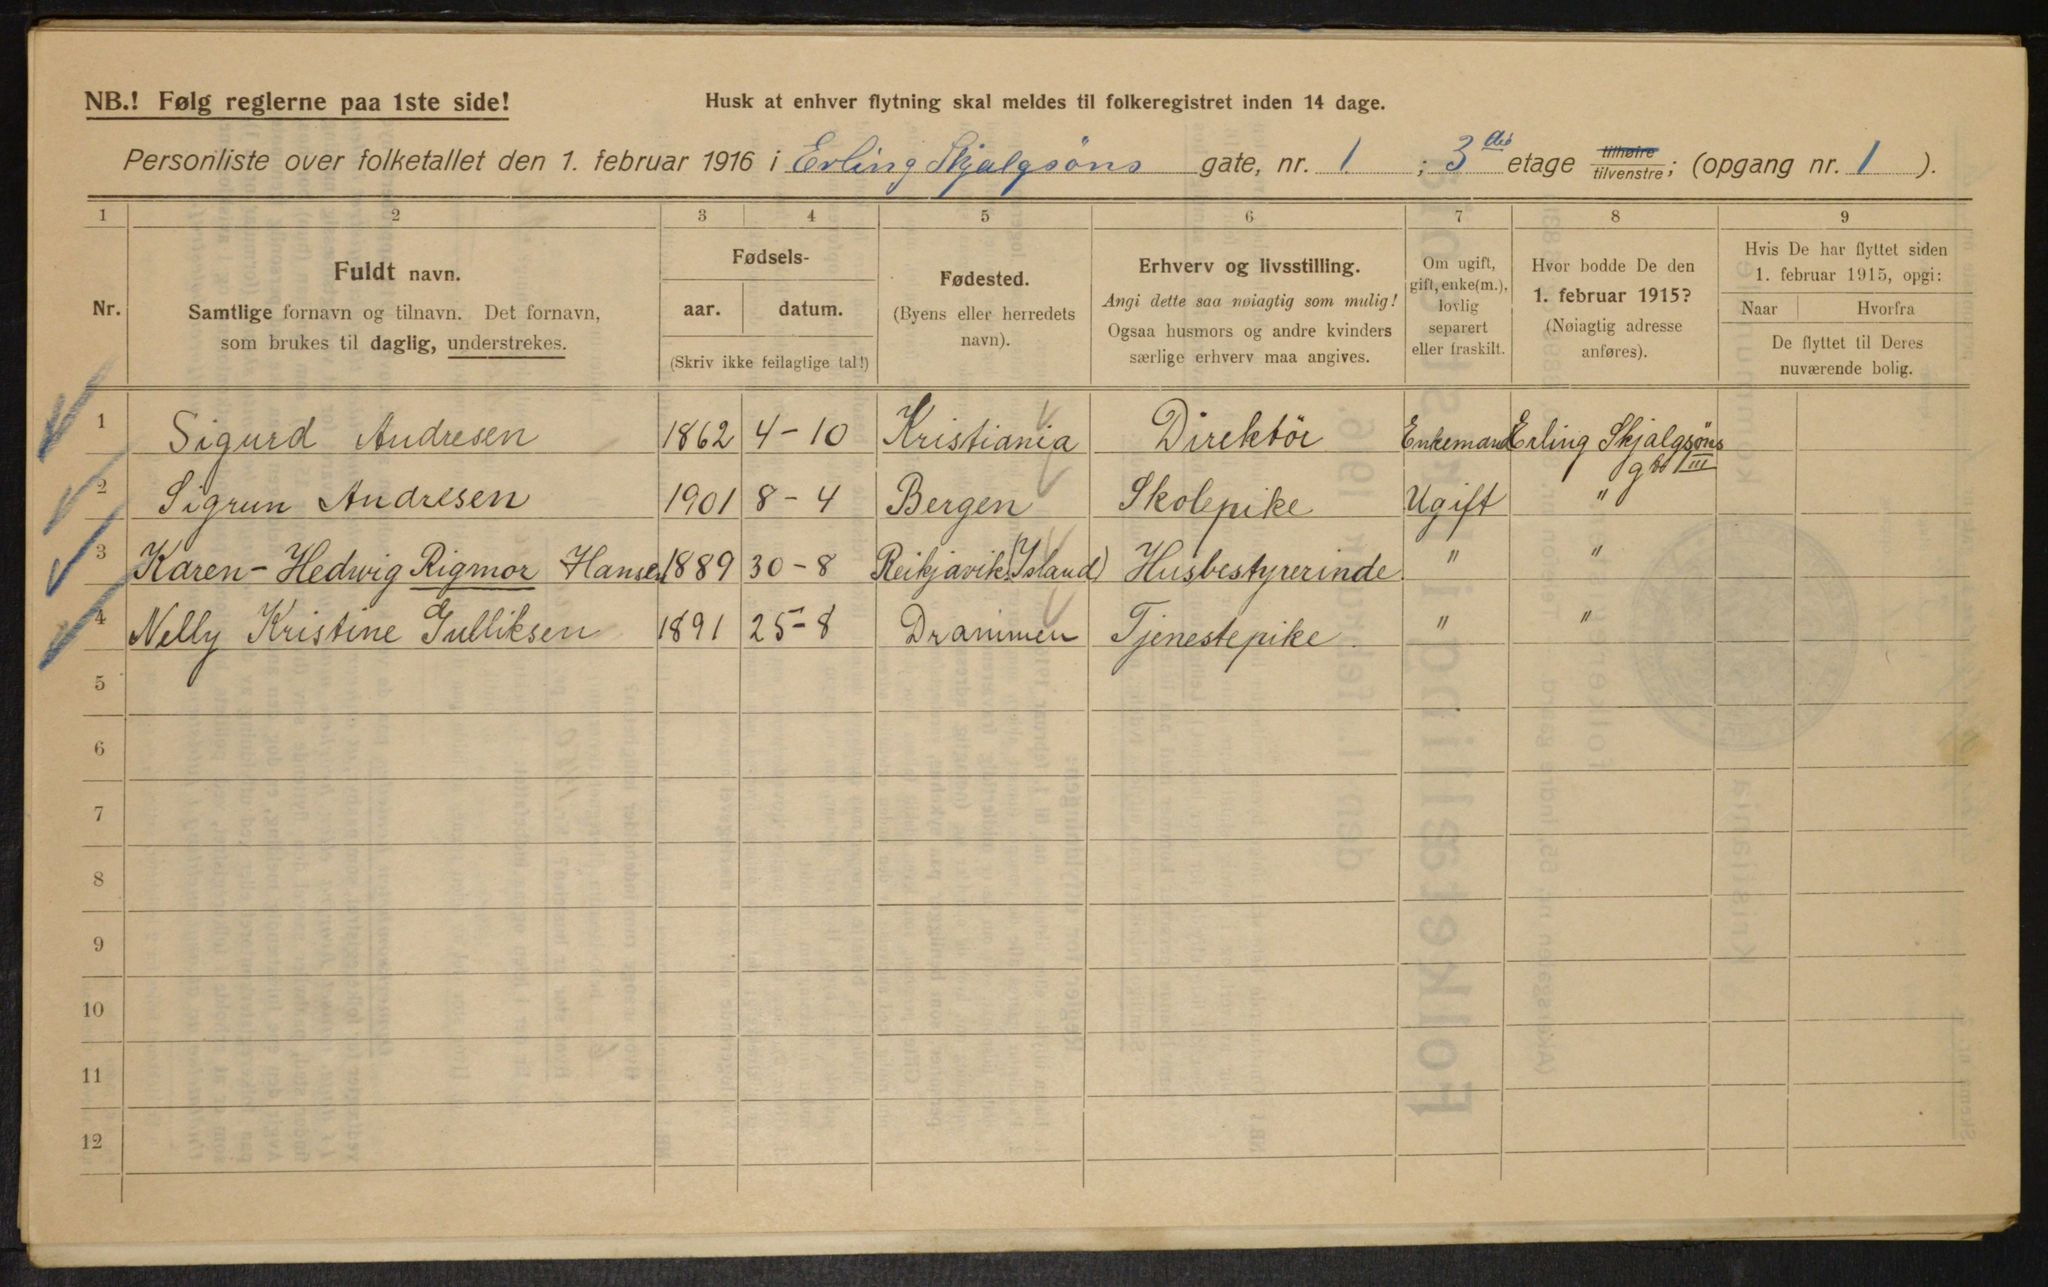 NB.! Følg reglerne paa 1ste side!
Husk at enhver flytning skal meldes til folkeregistret inden 14 dage.
Personliste over folketallet den 1. februar 1916 i Erling Skjalgsöns gate, nr. 1 ; 3 etage tilhøire tilvenstre; (opgang nr. 1 ).
1 2 3 4 5 6 7 8 9
Nr.
Fuldt navn.
Samtlige fornavn og tilnavn. Det fornavn,
som brukes til daglig, understrekes.
Fødsels-
aar. datum.
(Skriv ikke feilagtige tal!)
Fødested.
(Byens eller herredets
navn).
Erhverv og livsstilling.
Angi dette saa nøiagtig som mulig!
Ogsaa husmors og andre kvinders
særlige erhverv maa angives.
Om ugift,
gift, enke(m.),
lovlig
separert
eller fraskilt.
Hvor bodde De den
1. februar 1915?
(Nøiagtig adresse
anføres).
Hvis De har flyttet siden
1. februar 1915, opgi:
Naar Hvorfra
De flyttet til Deres
nuværende bolig.
1 Sigurd Andresen 1862 4-10 Kristiania Direktör Enkemand Erling Skjalgsöns
III
2 Sigrun Andresen 1901 8-4 Bergen Skolepike Ugift "
3 Karen-Hedwig Rigmor Hansen 1889 30-8 Reikjavik (Island) Husbestyrerinde " "
4 Nelly Kristine Gulliksen 1891 25-8 Drammen Tjenestepike " "
5
6
7
8
9
10
11
12